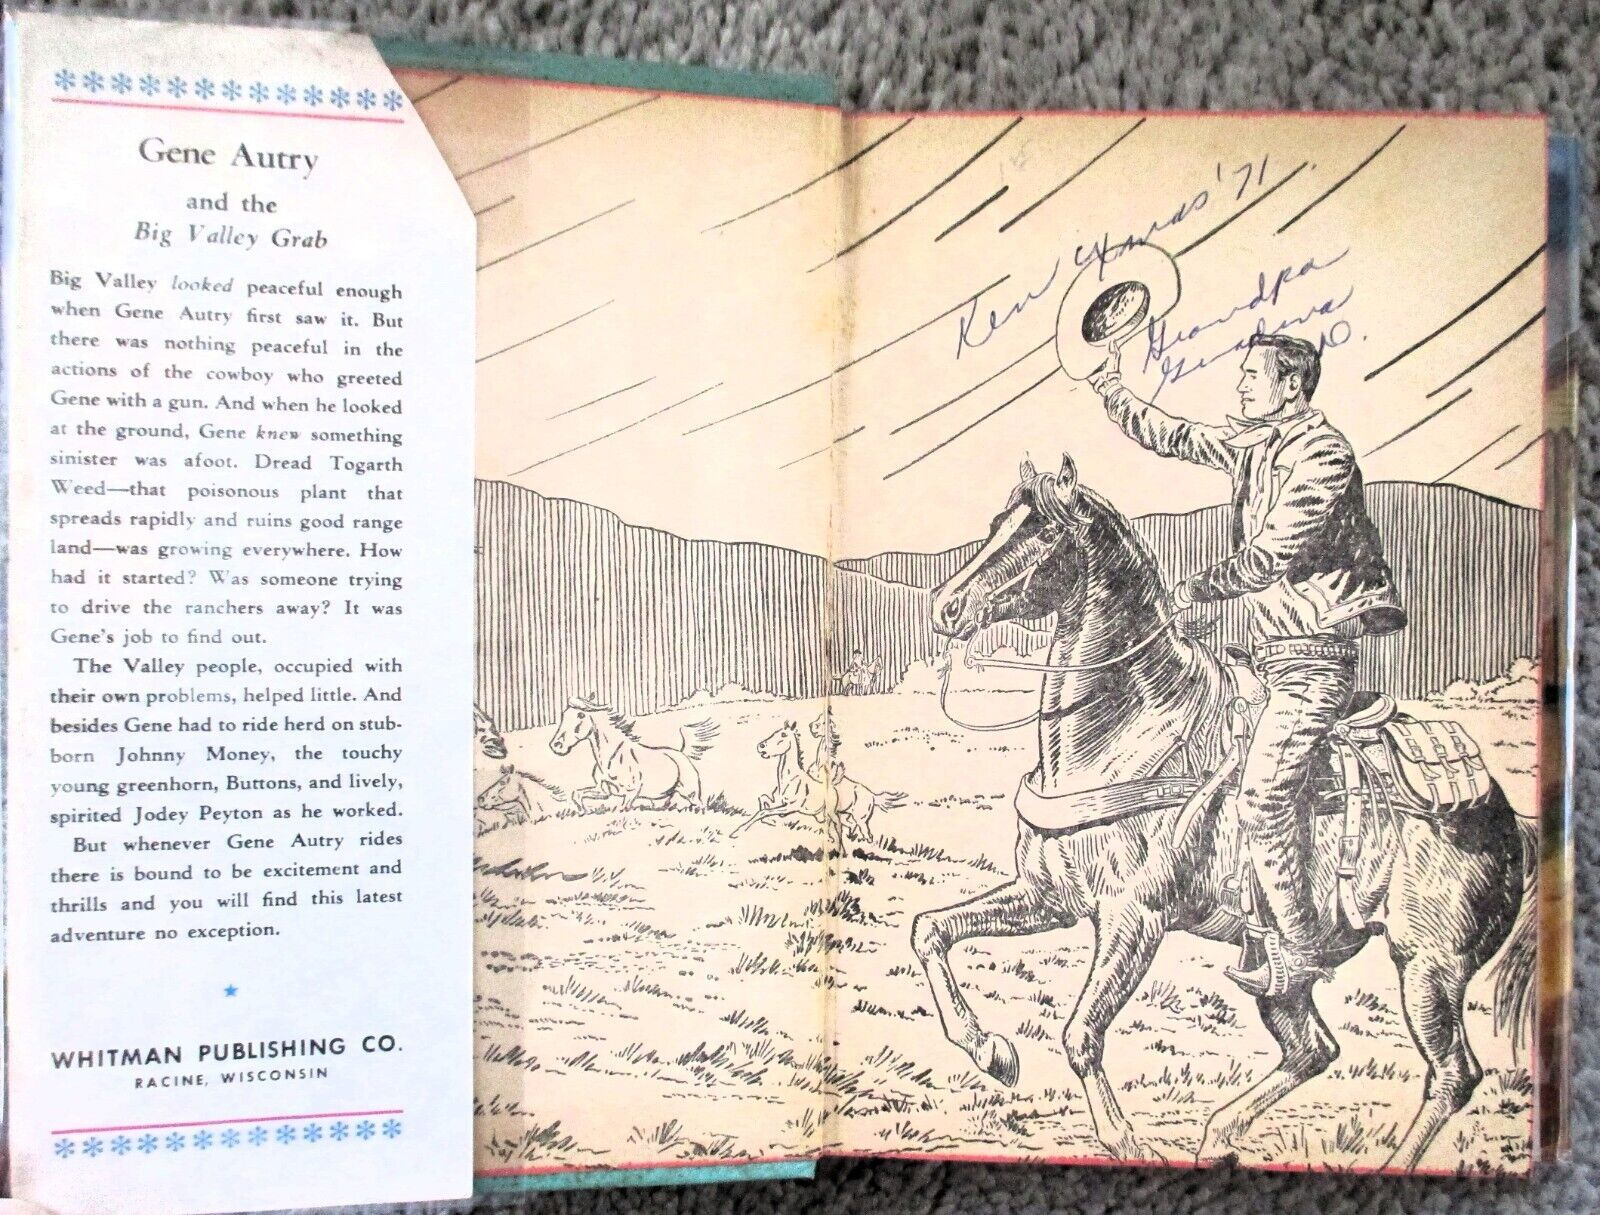 Gene Autry
and the
Big Valley Grab
Big Valley looked peaceful enough
when Gene Autry first saw it. But
there was nothing peaceful in the
actions of the cowboy who greeted
Gene with a gun. And when he looked
at the ground, Gene knew something
sinister was afoot. Dread Togarth
Weed—that poisonous plant that
spreads rapidly and ruins good range
land—was growing everywhere. How
had it started? Was someone trying
to drive the ranchers away? It was
Gene's job to find out.
The Valley people, occupied with
their own problems, helped little. And
besides Gene had to ride herd on stub-
born Johnny Money, the touchy
young greenhorn, Buttons, and lively,
spirited Jodey Peyton as he worked.
But whenever Gene Autry rides
there is bound to be excitement and
thrills and you will find this latest
adventure no exception.
WHITMAN PUBLISHING CO.
RACINE, WISCONSIN
Ken Xmas '71
Grandpa
Grandma
D.